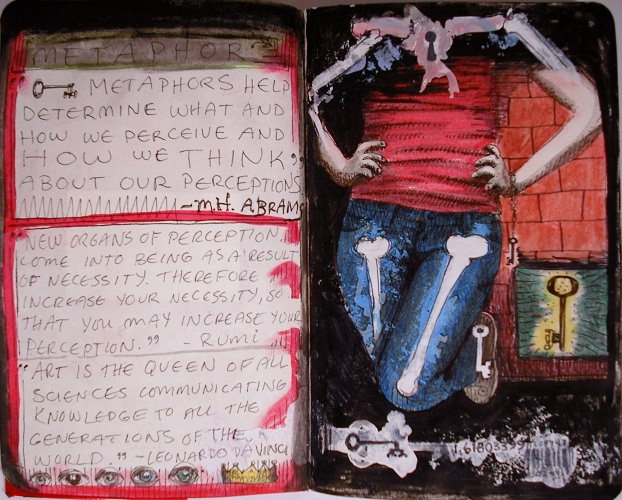 METAPHOR
METAPHORS HELP
DETERMINE WHAT AND
HOW WE PERCEIVE AND
HOW WE THINK
ABOUT OUR PERCEPTIONS"
- M.H. ABRAMS
NEW ORGANS OF PERCEPTION
COME INTO BEING AS A RESULT
OF NECESSITY. THEREFORE
INCREASE YOUR NECESSITY, SO
THAT YOU MAY INCREASE YOUR
PERCEPTION." - RUMI
"ART IS THE QUEEN OF ALL
SCIENCES COMMUNICATING
KNOWLEDGE TO ALL THE
GENERATIONS OF THE
WORLD." - LEONARDO DA VINCI
1.6180339